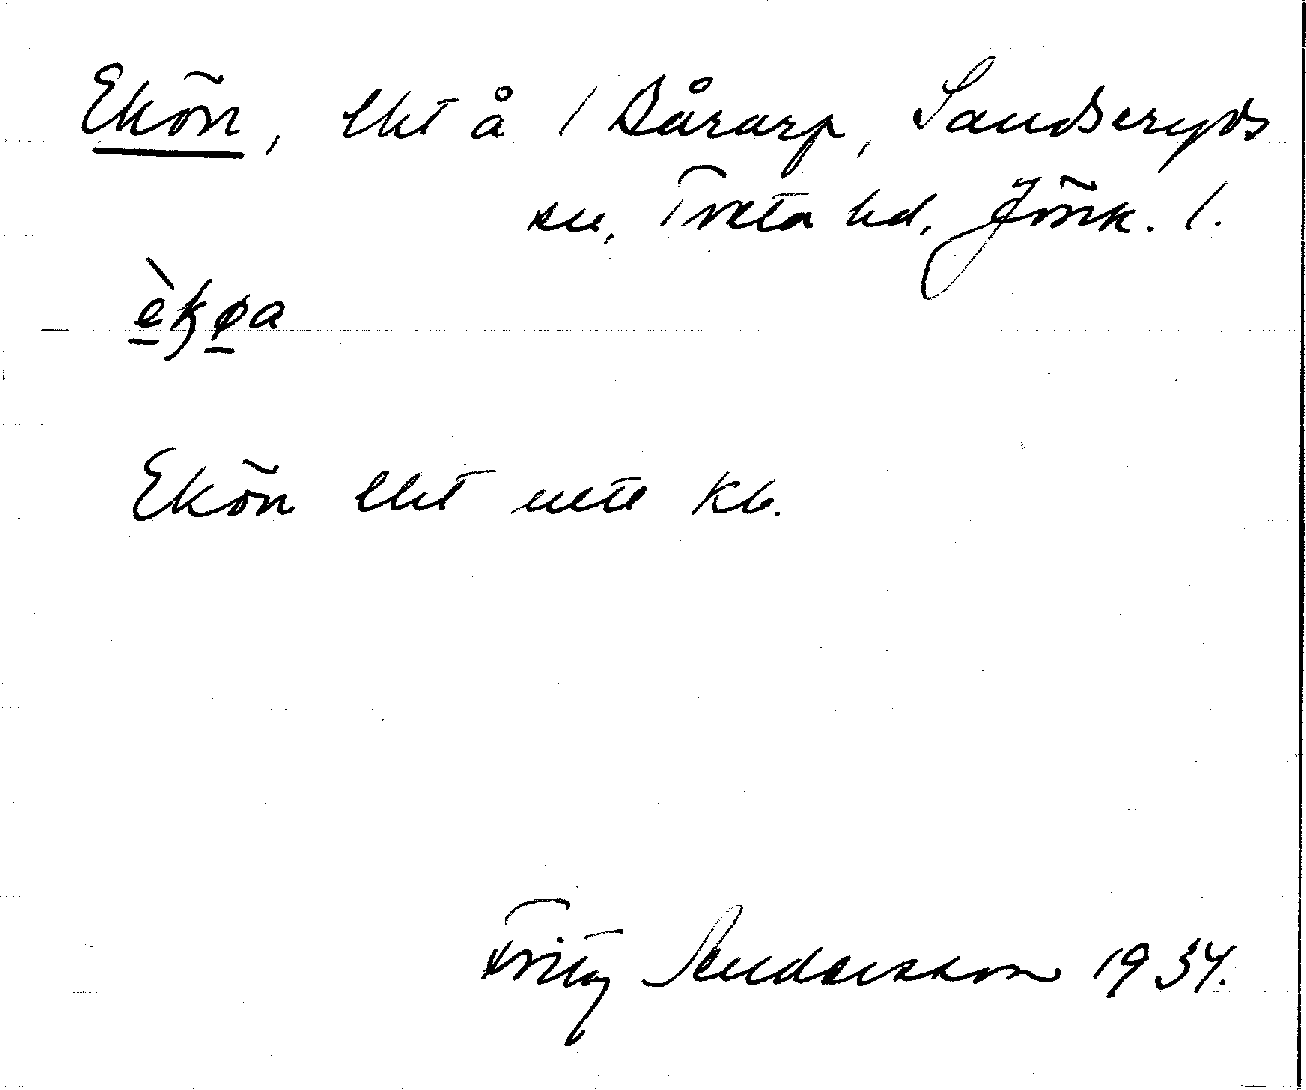 Ekön, lht å 1 Bårarp, Sandseryds
sn, Tveta hd, Jönk. l.
èkøa
Ekön lht enl. kb.
Fritz Andersson 1934.